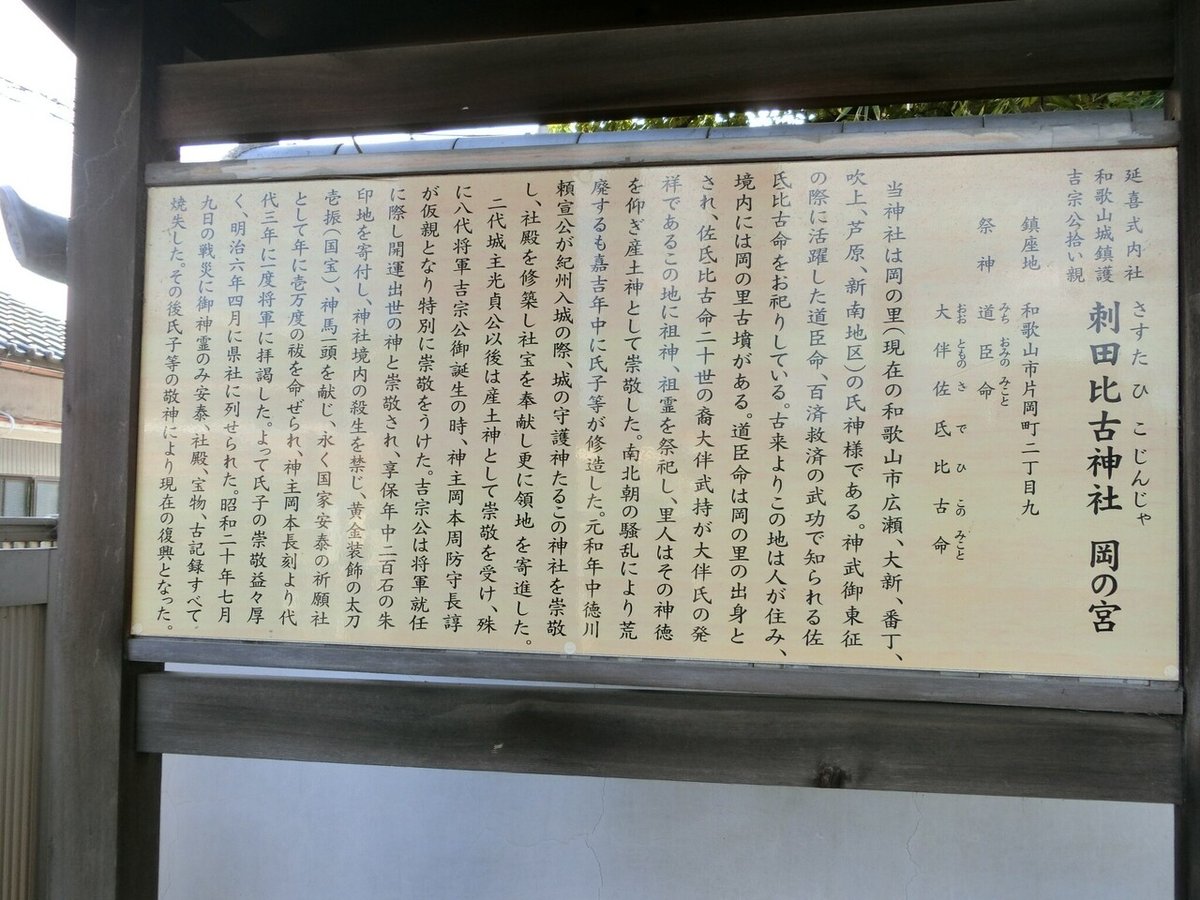 延喜式内社
和歌山城鎮護
吉宗公拾い親
さすたひこじんじゃ
刺田比古神社 岡の宮
鎮座地 和歌山市片岡町二丁目九
祭神 道臣命
みち おみの みこと
大伴佐氏比古命
おお とものさ で ひ このみこと
当神社は岡の里(現在の和歌山市広瀬、大新、番丁、
吹上、芦原、新南地区)の氏神様である。神武御東征
の際に活躍した道臣命、百済救済の武功で知られる佐
氏比古命をお祀りしている。古来よりこの地は人が住み、
境内には岡の里古墳がある。道臣命は岡の里の出身と
され、佐氏比古命二十世の裔大伴武持が大伴氏の発
祥であるこの地に祖神、祖霊を祭祀し、里人はその神徳
を仰ぎ産土神として崇敬した。南北朝の騒乱により荒
廃するも嘉吉年中に氏子等が修造した。元和年中徳川
頼宣公が紀州入城の際、城の守護神たるこの神社を崇敬
し、社殿を修築し社宝を奉献し更に領地を寄進した。
二代城主光貞公以後は産土神として崇敬を受け、殊
に八代将軍吉宗公御誕生の時、神主岡本周防守長諄
が仮親となり特別に崇敬をうけた。吉宗公は将軍就任
に際し開運出世の神と崇敬され、享保年中二百石の朱
印地を寄付し、神社境内の殺生を禁じ、黄金装飾の太刀
壱振(国宝)、神馬一頭を献じ、永く国家安泰の祈願社
として年に壱万度の祓を命ぜられ、神主岡本長刻より代
代三年に一度将軍に拝謁した。よって氏子の崇敬益々厚
く、明治六年四月に県社に列せられた。昭和二十年七月
九日の戦災に御神霊のみ安泰、社殿、宝物、古記録すべて
焼失した。その後氏子等の敬神により現在の復興となった。